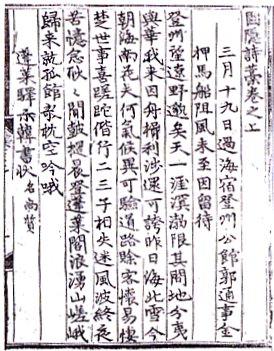 圃隱詩藁卷之上
三月十九日過海宿登州公館郭通事金
押馬船阻風未至因留待
登州望遠野邈矣天一涯溟渤限其間地分夷
與華我來因舟楫利涉還可誇昨日海北雪今
朝海南花夫何氣候異可驗道路賒客懷易悽
楚世事喜蹉跎偕行二三子相失迷風波終夜
苦憶念耿〻聞鼓撾晨登蓬萊閣浪湧山嵯峨
歸來就孤館欹枕空吟哦
蓬萊驛示韓書狀名尚質